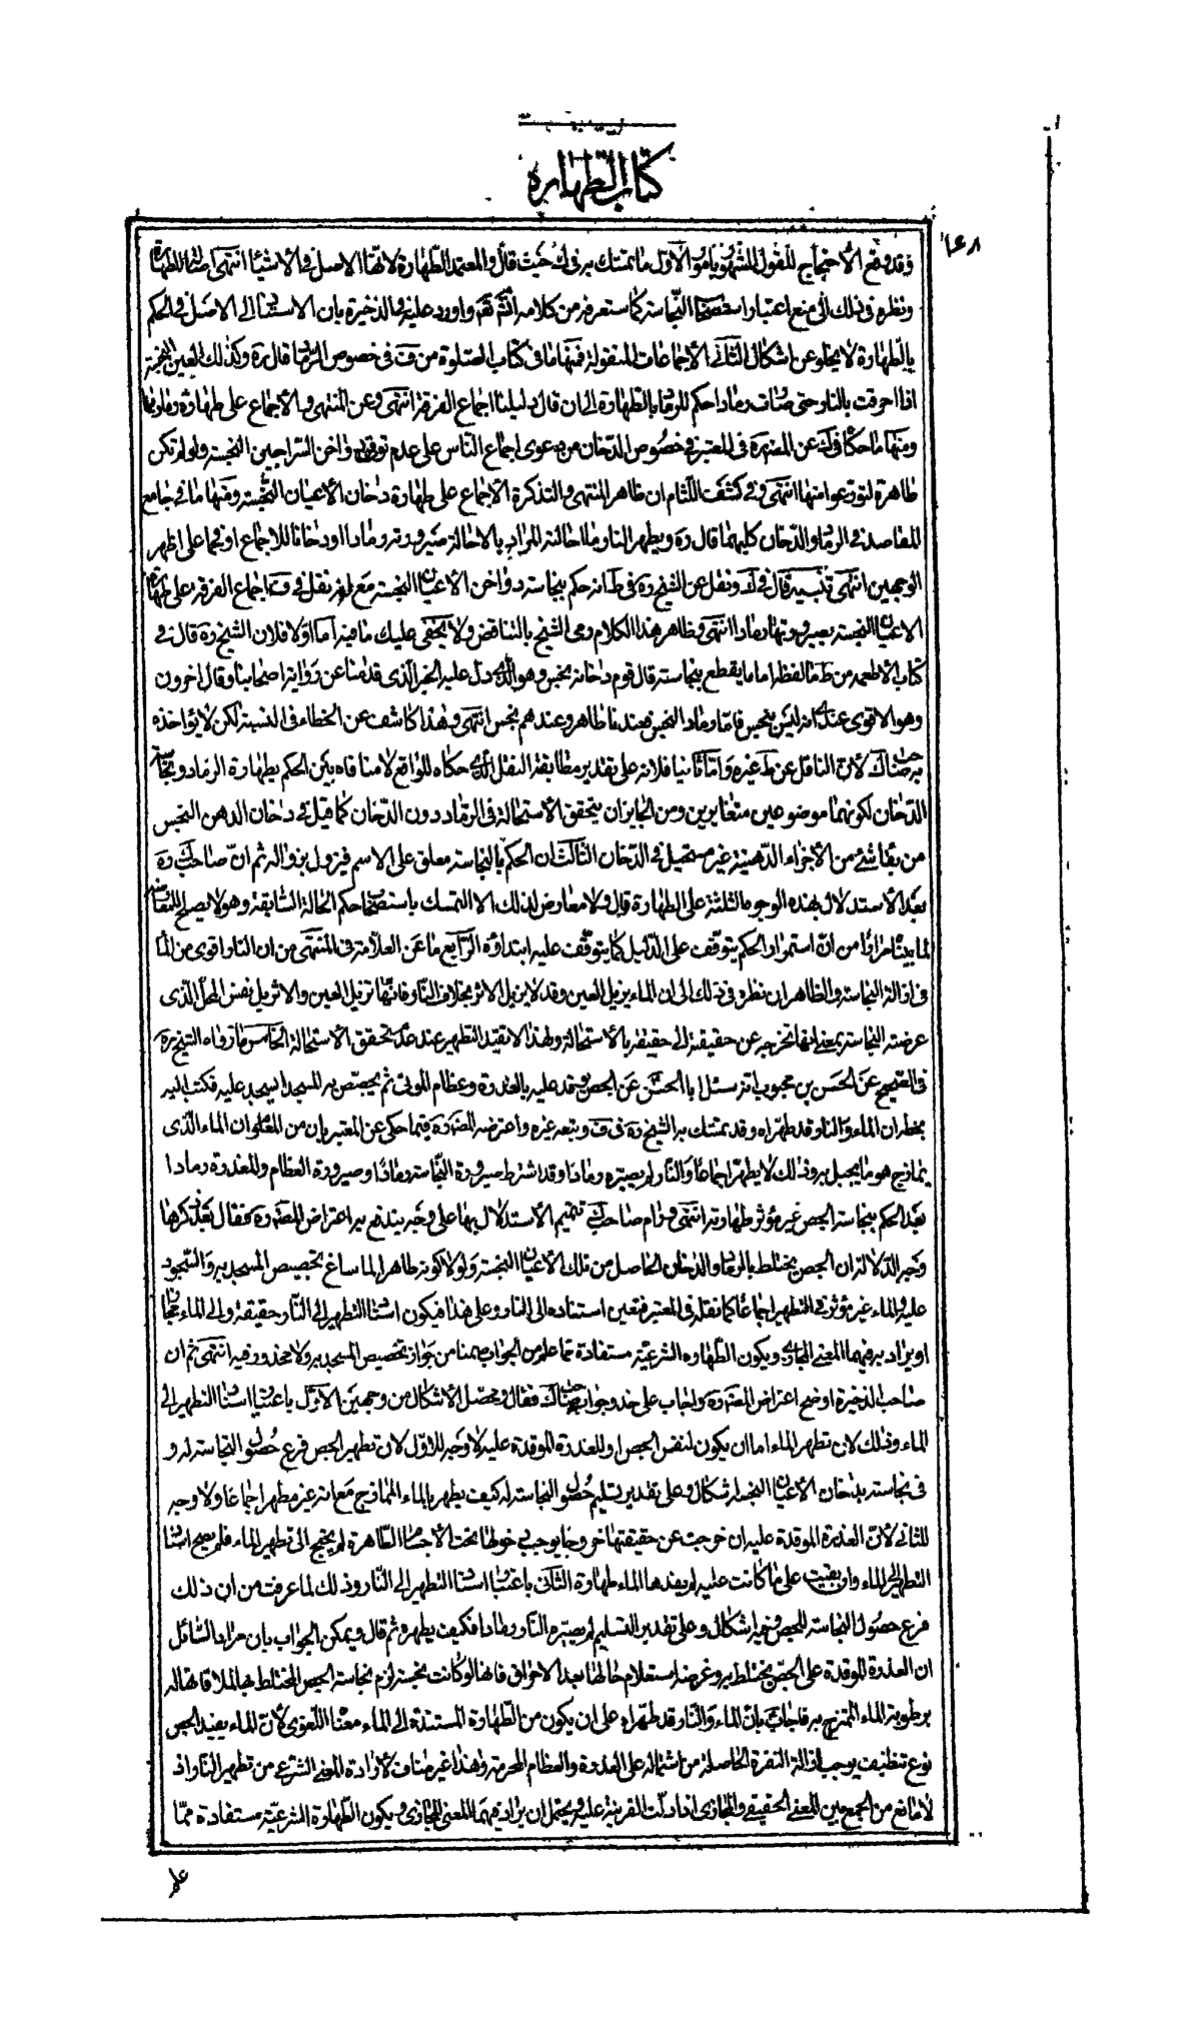 كتاب الطهارة
وقد وقع الأحتجاج للقول المشهور بامور الأول ما تمسك به فى ك حيث قال والمعتمد الطهارة لانها الاصل فى الاشياء انتهى
ونظره فى ذلك الى منع اعتبار استصحاب النجاسة كما ستعرفه من كلامه واورد عليه فى الذخيرة بان الاستناد الى الاصل فى الحكم
بالطهارة لا يخلو عن اشكال الثانى الأجماعات المنقولة فمنها ما فى كتاب الصلوة من ف فى خصوص الرماد قال ره وكذلك العين النجسة
اذا احرقت بالنار حتى صارت رمادا حكم للرماد بالطهارة الى ان قال دليلنا اجماع الفرقة انتهى وعن المنتهى الأجماع على طهارة رمادها
ومنها ما حكاه فى ك عن المصنف ره فى المعتبر فى خصوص الدخان من دعوى اجماع الناس على عدم توقى دواخن السراجين النجسة ولو لم تكن
طاهرة لتورعوا منها انتهى وفى كشف اللثام ان ظاهر المنتهى والتذكرة الأجماع على طهارة دخان الأعيان النجسة ومنها ما فى جامع
المقاصد فى الرماد والدخان كليهما قال ره ويطهر النار ما احالته المراد بالاحالة صيرورته رمادا او دخانا للاجماع او فحما على اظهر
الوجهين انتهى تنبيه قال فى ك ونقل عن الشيخ ره فى ط انه حكم بنجاسة دواخن الأعيان النجسة مع انه نقل فى ف اجماع الفرقة على طهارة
الاعيان النجسة بصيرورتها رمادا انتهى وظاهر هذا الكلام رمى الشيخ بالتناقض ولا يخفى عليك ما فيه اما اولا فلان الشيخ ره قال فى
كتاب الأطعمة من ط ما لفظه اما ما يقطع بنجاسته قال قوم دخانه نجس وهو الذى دل عليه الخبر الذى قدمناه عن رواية اصحابنا وقال اخرون
وهو الاقوى عندى انه ليس بنجس فاما رماد النجس فعندنا طاهر وعندهم نجس انتهى وهذا كاشف عن الخطاء فى النسبة لكن لا يؤاخذه
به صاحب ك لأن الناقل عن ط غيره وامّا ثانيا فلانه على تقدير مطابقة النقل الذى حكاه للواقع لا منافاه بين الحكم بطهارة الرماد ونجاسة
الدخان لكونهما موضوعين متغايرين ومن الجايز ان يتحقق الأستحالة فى الرماد دون الدخان كما قيل فى دخان الدهن النجس
من بقاء شئ من الأجزاء الدهنية غير مستحيل فى الدخان الثالث ان الحكم بالنجاسة معلق على الاسم فيزول بزواله ثم انّ صاحب ك ره
بعد الأستدلال بهذه الوجوه الثلثة على الطهارة قال ولا معارض لذلك الا التمسك باستصحاب حكم الحالة السابقة وهو لا يصلح للمعارضة
لما بيناه مرارا من انّ استمرار الحكم يتوقف على الدليل كما يتوقف عليه ابتداؤه الرابع ما عن العلامة فى المنتهى من ان النار اقوى من الماء
فى ازالة النجاسة والظاهر ان نظره فى ذلك الى ان الماء يزيل العين وقد لا يزيل الاثر بخلاف النار فانها تزيل العين والاثر بل نفس المحل الذى
عرضته النجاسة بمعنى انها تخرجه عن حقيقة الى حقيقة بالأستحالة ولهذا لا نقيد التطهير عند عدم تحقق الاستحالة الخامس ما رواه الشيخ ره
فى الصحيح عن الحسن بن محبوب انه سئل ابا الحسن عن الجص يوقد عليه بالعذرة وعظام الموتى ثم يجصص به المسجد ايسجد عليه فكتب اليه
بخطه ان الماء والنار قد طهراه وقد تمسك به الشيخ ره فى ف وتبعه غيره واعترضه المصنف ره فيما حكى عن المعتبر بان من المعلوم ان الماء الذى
يمازج هو ما يجبل به وذلك لا يطهر اجماعا والنار لم يصيّره رمادا وقد اشترط صيرورة النجاسة رمادا وصيرورة العظام والعذرة رمادا
بعد الحكم بنجاسة الجص غير مؤثر طهارته انتهى ورام صاحب ك تتميم الأستدلال بها على وجه يندفع به اعتراض المصنف ره فقال بعد ذكرها
وجه الدلالة ان الجص يختلط بالرماد والدخان الحاصل من تلك الأعيان النجسة ولولا كونه طاهرا لما ساغ تجصيص المسجد به والسجود
عليه والماء غير مؤثر فى التطهير اجماعا كما نقله فى المعتبر فتعين استناده الى النار وعلى هذا فيكون اسناد التطهير الى النار حقيقة والى الماء مجازا
او يراد به فيهما المعنى المجازى ويكون الطهارة الشرعية مستفادة مما علم من الجواب ضمنا من جواز تجصيص المسجد به ولا محذور فيه انتهى ثم ان
صاحب الذخيرة اوضح اعتراض المصنف ره واجاب على حذو جواب صاحب ك فقال ومحصل الأشكال من وجهين الأوّل باعتبار اسناد التطهير الى
الماء وذلك لان تطهر الماء اما ان يكون لنفس الجص او للعذرة الموقدة عليه لا وجه للاول لان تطهير الجص فرع حصول النجاسة له و
فى نجاسته بدخان الأعيان النجسة اشكال وعلى تقدير تسليم حصول النجاسة له كيف يطهر بالماء الممازج مع انه غير مطهر اجماعا ولا وجه
للثانى لأن العذرة الموقدة عليه ان خرجت عن حقيقتها خروجا يوجب دخولها تحت الأجسام الطاهرة لم يحتج الى تطهير الماء فلم يصح اسناد
التطهير الى الماء وان بقيت على ما كانت عليه لم يفدها الماء طهارة الثانى باعتبار اسناد التطهير الى النار وذلك لما عرفت من ان ذلك
فرع حصول النجاسة للجص وفيه اشكال وعلى تقدير التسليم لم يصيّره النار رمادا فكيف يطهره ثم قال ويمكن الجواب بان مراد السائل
ان العذرة الموقدة على الجص يختلط به وغرضه استعلام حالها بعد الاحراق فانها لو كانت نجسة لزم نجاسة الجص المختلط بها لملاقاتها له
برطوبة الماء الممتزج به فاجاب بان الماء والنار قد طهراه على ان يكون من الطهارة المستندة الى الماء معناها اللغوى لأن الماء يفيد الجص
نوع تنظيف يوجب ازالة النفرة الحاصلة من اشتماله على العذرة والعظام المحرمة وهذا غير مناف لأرادة المعنى الشرعى من تطهير النار اذ
لا مانع من الجمع بين المعنى الحقيقى والمجازى اذا دلت القرينة عليه ويحتمل ان يراد فيهما المعنى المجازى ويكون الطهارة الشرعية مستفادة ممّا
علم